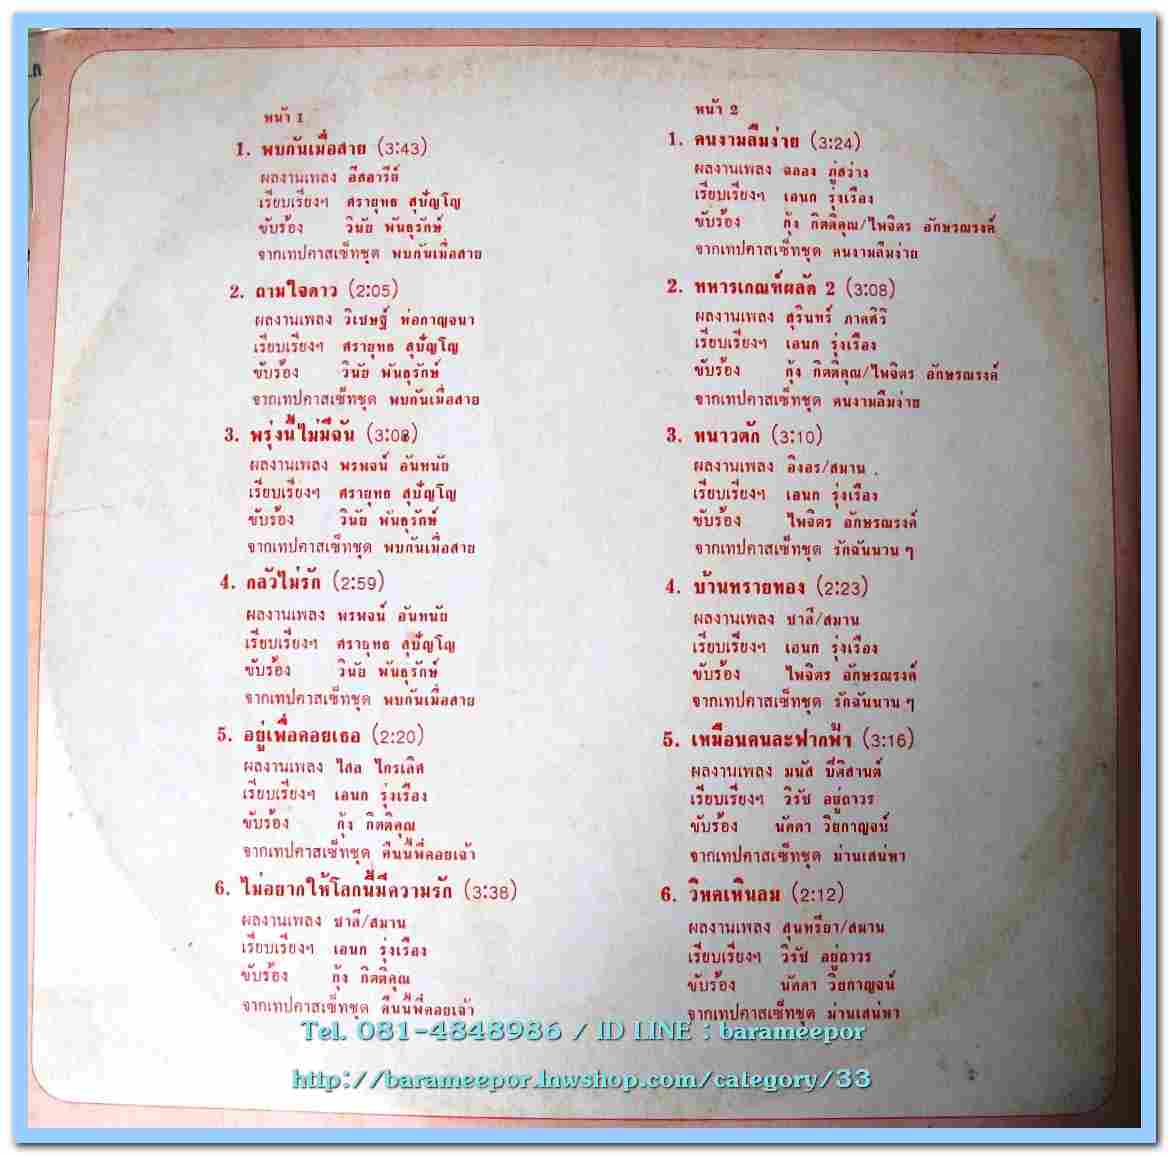 หน้า 1
1. พบกันเมื่อสาย (3:43)
ผลงานเพลง อิสอารีย์
เรียบเรียงฯ ศรายุทธ สุปัญโญ
ขับร้อง วินัย พันธุรักษ์
จากเทปคาสเซ็ทชุด พบกันเมื่อสาย
2. ถามใจดาว (2:05)
ผลงานเพลง วิเชษฐ์ ห่อกาญจนา
เรียบเรียงฯ ศรายุทธ สุปัญโญ
ขับร้อง วินัย พันธุรักษ์
จากเทปคาสเซ็ทชุด พบกันเมื่อสาย
3. พรุ่งนี้ไม่มีฉัน (3:08)
ผลงานเพลง พรพจน์ อันทนัย
เรียบเรียงฯ ศรายุทธ สุปัญโญ
ขับร้อง วินัย พันธุรักษ์
จากเทปคาสเซ็ทชุด พบกันเมื่อสาย
4. กลัวไม่รัก (2:59)
ผลงานเพลง พรพจน์ อันทนัย
เรียบเรียงฯ ศรายุทธ สุปัญโญ
ขับร้อง วินัย พันธุรักษ์
จากเทปคาสเซ็ทชุด พบกันเมื่อสาย
5. อยู่เพื่อคอยเธอ (2:20)
ผลงานเพลง ไสล ไกรเลิศ
เรียบเรียงฯ เอนก รุ่งเรือง
ขับร้อง กุ้ง กิตติคุณ
จากเทปคาสเซ็ทชุด คืนนี้พี่คอยเจ้า
6. ไม่อยากให้โลกนี้มีความรัก (3:38)
ผลงานเพลง ชาลี/สมาน
เรียบเรียงฯ เอนก รุ่งเรือง
ขับร้อง กุ้ง กิตติคุณ
จากเทปคาสเซ็ทชุด คืนนี้พี่คอยเจ้า
หน้า 2
1. คนงามลืมง่าย (3:24)
ผลงานเพลง ฉลอง ภู่สว่าง
เรียบเรียงฯ เอนก รุ่งเรือง
ขับร้อง กุ้ง กิตติคุณ/ไพจิตร อักษรณรงค์
จากเทปคาสเซ็ทชุด คนงามลืมง่าย
2. ทหารเกณฑ์ผลัด 2 (3:08)
ผลงานเพลง สุรินทร์ ภาคศิริ
เรียบเรียงฯ เอนก รุ่งเรือง
ขับร้อง กุ้ง กิตติคุณ/ไพจิตร อักษรณรงค์
จากเทปคาสเซ็ทชุด คนงามลืมง่าย
3. หนาวตัก (3:10)
ผลงานเพลง อิงอร/สมาน
เรียบเรียงฯ เอนก รุ่งเรือง
ขับร้อง ไพจิตร อักษรณรงค์
จากเทปคาสเซ็ทชุด รักฉันนาน ๆ
4. บ้านทรายทอง (2:23)
ผลงานเพลง ชาลี/สมาน
เรียบเรียงฯ เอนก รุ่งเรือง
ขับร้อง ไพจิตร อักษรณรงค์
จากเทปคาสเซ็ทชุด รักฉันนาน ๆ
5. เหมือนคนละฟากฟ้า (3:16)
ผลงานเพลง มนัส ปิติสานต์
เรียบเรียงฯ วิรัช อยู่ถาวร
ขับร้อง นัดดา วิยกาญจน์
จากเทปคาสเซ็ทชุด ม่านเสน่หา
6. วิหคเหินลม (2:12)
ผลงานเพลง สุนทรียา/สมาน
เรียบเรียงฯ วิรัช อยู่ถาวร
ขับร้อง นัดดา วิยกาญจน์
จากเทปคาสเซ็ทชุด ม่านเสน่หา
Tel. 081-4848986 / ID LINE : barameepor
http://barameepor.lnwshop.com/category/33